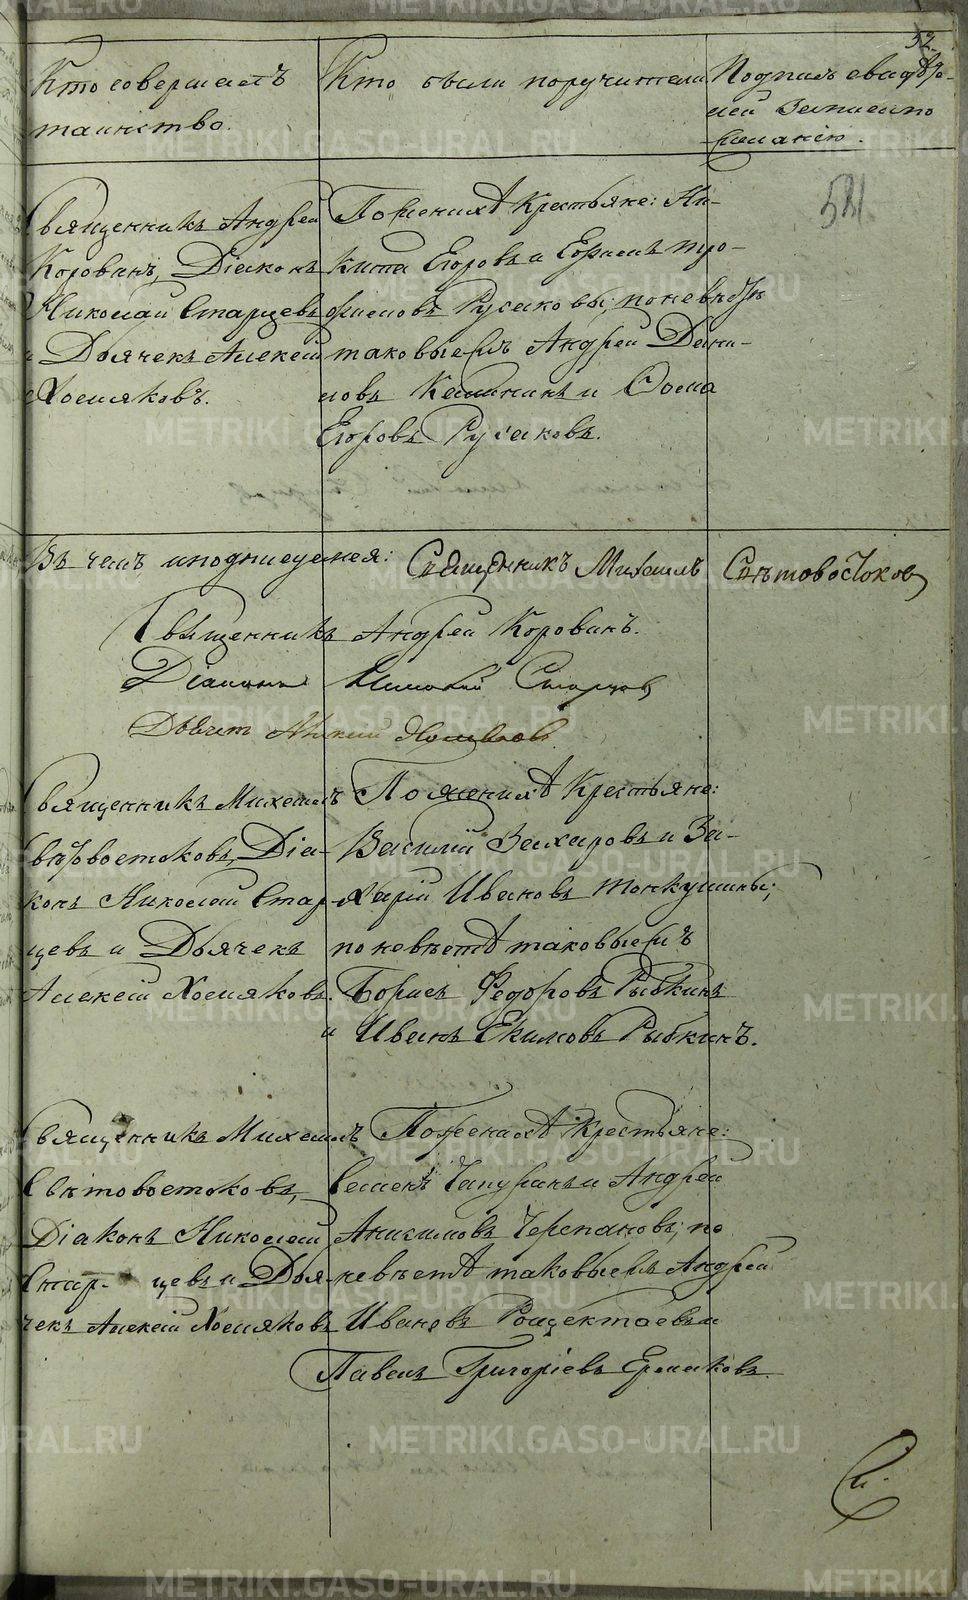 52.
Кто совершалъ
таинство.
Кто были поручители
Подпись свидѣте-
лей записи по
желанію.
521.
Священникъ Андрей
Коровинъ, Діаконъ
Николай Старцевъ
и Дьячекъ Алексей
Хомяковъ.
По женихѣ Крестьяне: Ни-
кита Егоровъ и Ефимъ Тро-
фимовъ Русаковы; по невѣстѣ
таковыежъ Андрей Дани-
ловъ Калининъ и Фома
Егоровъ Русаковъ.
Въ чемъ и подписуемся: Священникъ Михаилъ Свѣтовостоковъ
Священникъ Андрей Коровинъ.
Діаконъ Николай Старцевъ
Дьячекъ Алексей Хомяковъ.
Священникъ Михаилъ
Свѣтовостоковъ, Діа-
конъ Николай Стар-
цевъ и Дьячекъ
Алексій Хомяковъ.
По женихѣ Крестьяне:
Василій Захаровъ и За-
харій Ивановъ Тонкушины;
по невѣстѣ таковыежъ
Борисъ Федоровъ Рыбкинъ
и Иванъ Екимовъ Рыбкинъ.
Священникъ Михаилъ
Свѣтовостоковъ,
Діаконъ Николай
Стар- цевъ и Дья-
чекъ Алексій Хомяковъ
По женихѣ Крестьяне:
Семенъ и Андрей
Анисимовъ Черепановъ; по
невѣстѣ таковыежъ Андрей
Ивановъ и
Павелъ Григоріевъ Ермаковъ.
METRIKI.GASO-URAL.RU